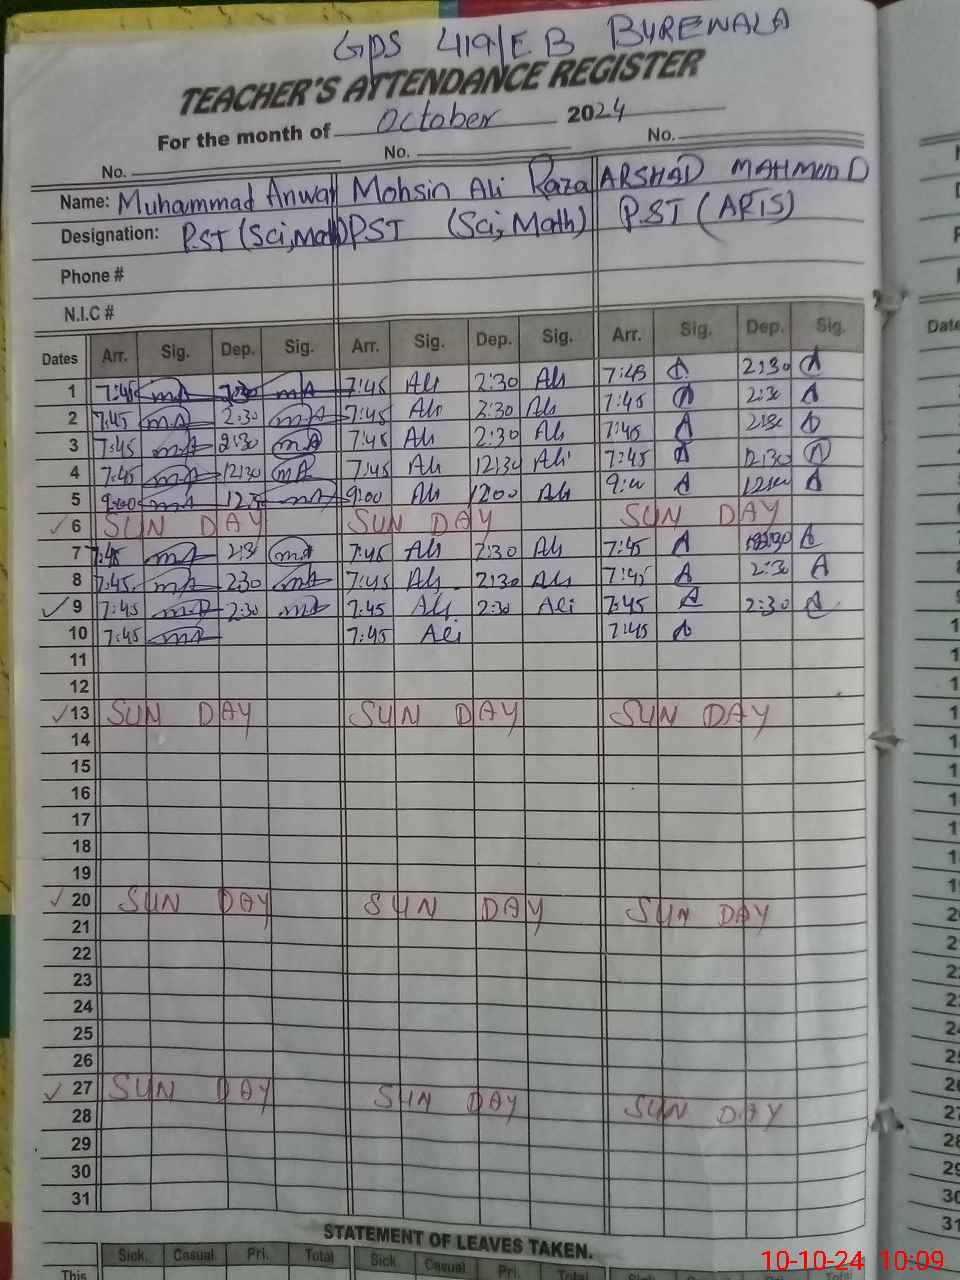 GPS 419/E B BUREWALA
TEACHER'S ATTENDANCE REGISTER
For the month of October 2024
No. No. No.
Name: Muhammad Anwar Mohsin Ali Raza ARSHAD MAHMOOD
Designation: P.ST (Sci, Math) PST (Sci, Math) P.ST (ARTS)
Phone #
N.I.C #
Dates Arr. Sig. Dep. Sig. Arr. Sig. Dep. Sig. Arr. Sig. Dep. Sig.
1 7:45 mA 2:30 mA 7:45 Ali 2:30 Ali 7:45 A 2:30 A
2 7:45 mA 2:30 mA 7:45 Ali 2:30 Ali 7:45 A 2:30 A
3 7:45 mA 2:30 mA 7:45 Ali 2:30 Ali 7:45 A 2:30 A
4 7:45 mA 12:30 mA 7:45 Ali 12:30 Ali 7:45 A 12:30 A
5 9:00 mA mA 9:00 Ali 1200 Ali 9:00 A A
6 SUN DAY SUN DAY SUN DAY
7 7:45 mA 2:30 mA 7:45 Ali 2:30 Ali 7:45 A A
8 7:45 mA 2:30 mA 7:45 Ali 2:30 Ali 7:45 A 2:30 A
9 7:45 mA 2:30 mA 7:45 Ali 2:30 Ali 7:45 A 2:30 A
10 7:45 mA 7:45 Ali 7:45 A
11
12
13 SUN DAY SUN DAY SUN DAY
14
15
16
17
18
19
20 SUN DAY SUN DAY SUN DAY
21
22
23
24
25
26
27 SUN DAY SUN DAY SUN DAY
28
29
30
31
STATEMENT OF LEAVES TAKEN.
Sick. Casual. Pri. Total Sick. Casual. Pri. Total Sick. Casual. Pri. Total
This
10-10-24 10:09